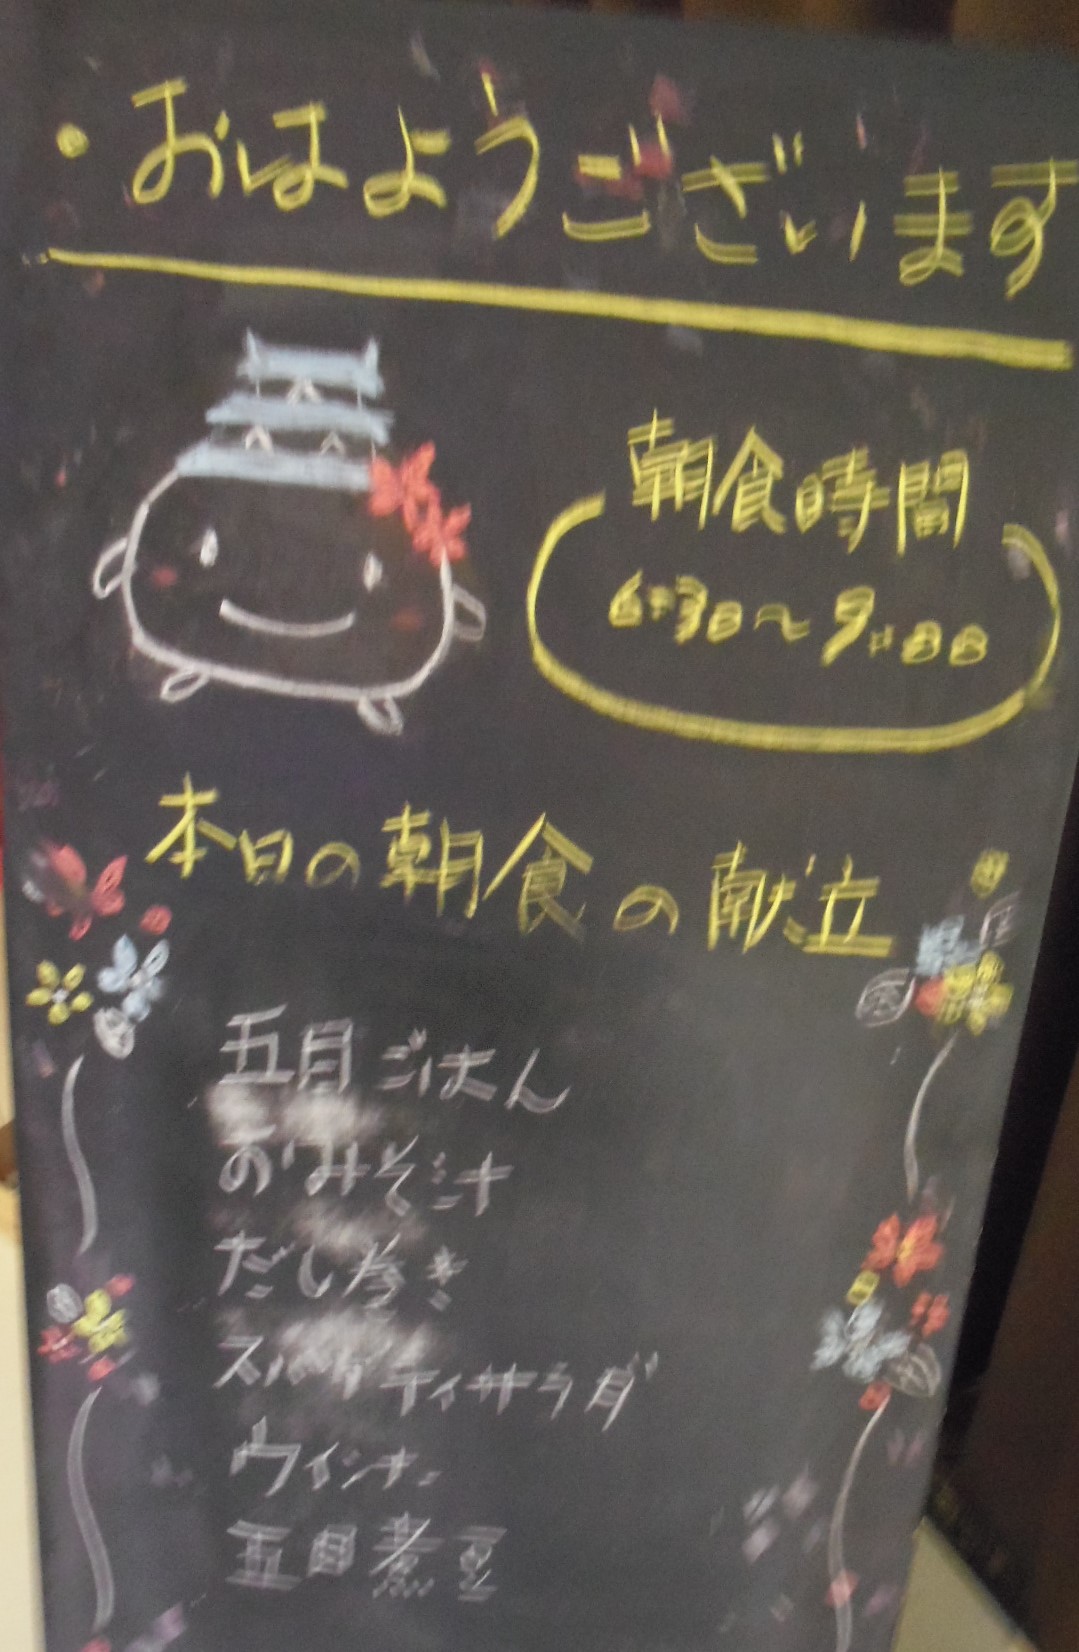 ・おはようございます
朝食時間
6:30〜9:00
本日の朝食の献立
五目ごはん
みそ汁
だし巻き
スパゲティサラダ
ウインナー
五目煮豆